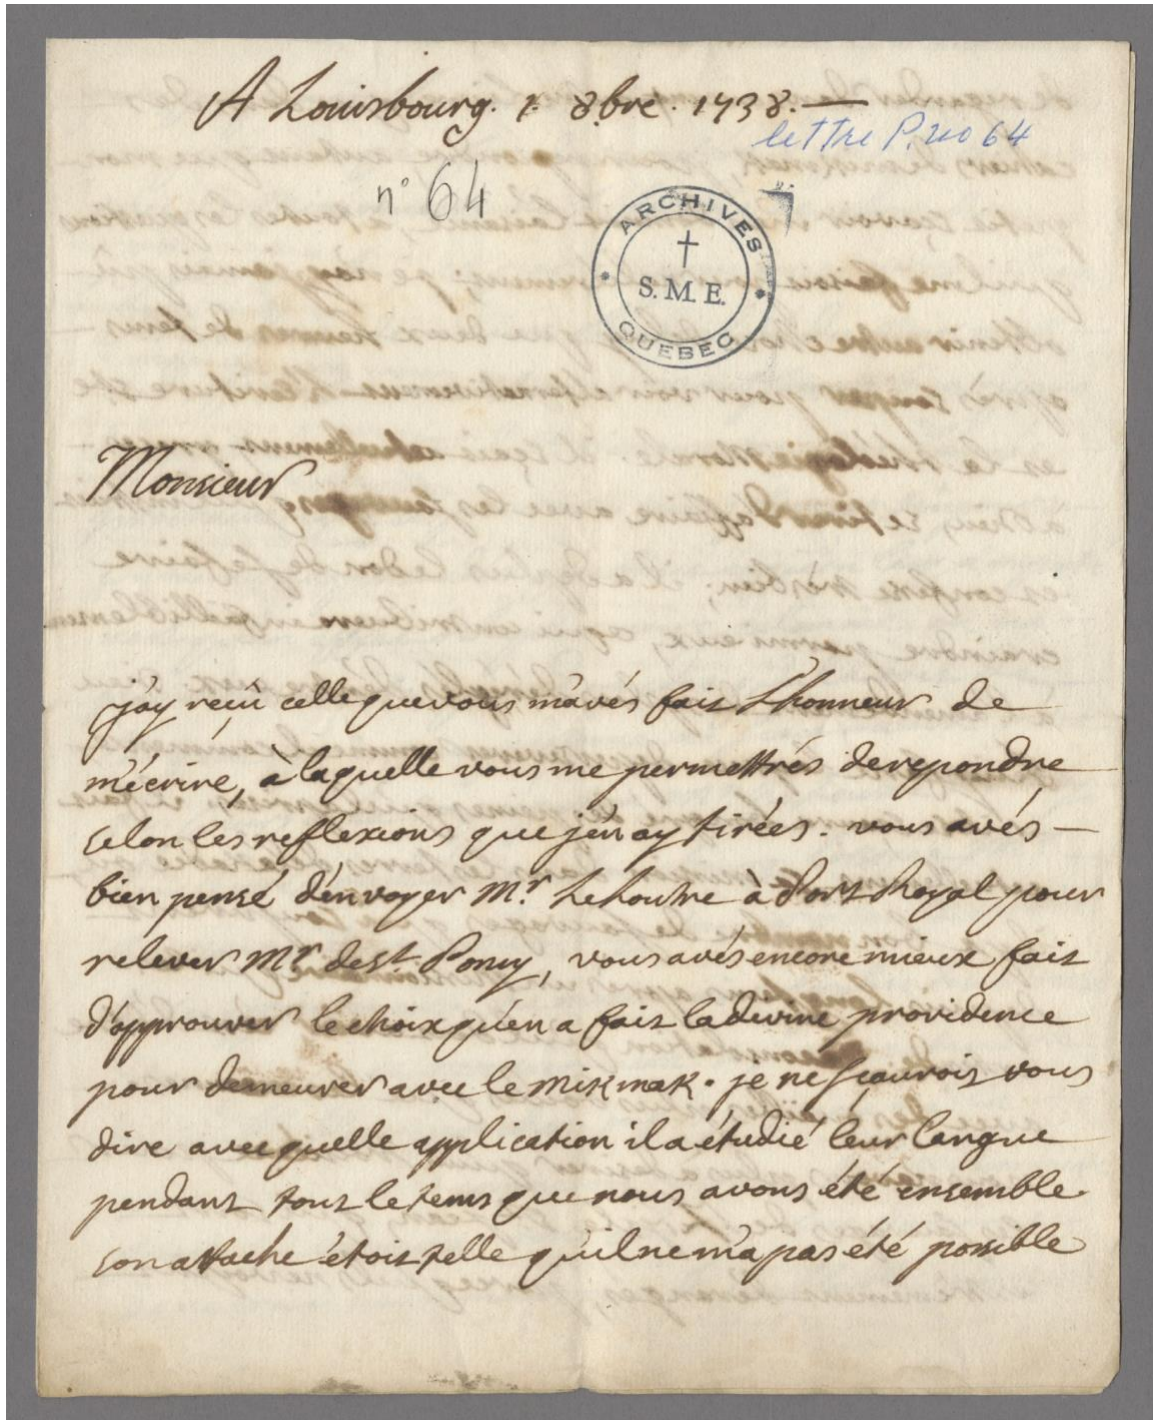 A Louisbourg. 1. 8.bre. 1738. —
lettre P. no 64
n° 64
ARCHIVES
S.M.E.
QUEBEC
Monsieur
j'ay reçû celle que vous m'avés fait L'honneur de
m'écrire, à laquelle vous me permettrés de repondre
selon les reflexions que j'en ay tirées. vous avés —
bien pensé d'envoyer Mr. LeLoutre à Port Royal pour
relever Mr. de St. Poncy, vous avés encore mieux fait
d'approuver le choix qu'en a fait la divine providence
pour demeurer avec le mikmak. je ne sçaurois vous
dire avec quelle application il a étudié leur langue
pendant tout le tems que nous avons été ensemble
son attache étoit telle qu'il ne m'a pas été possible